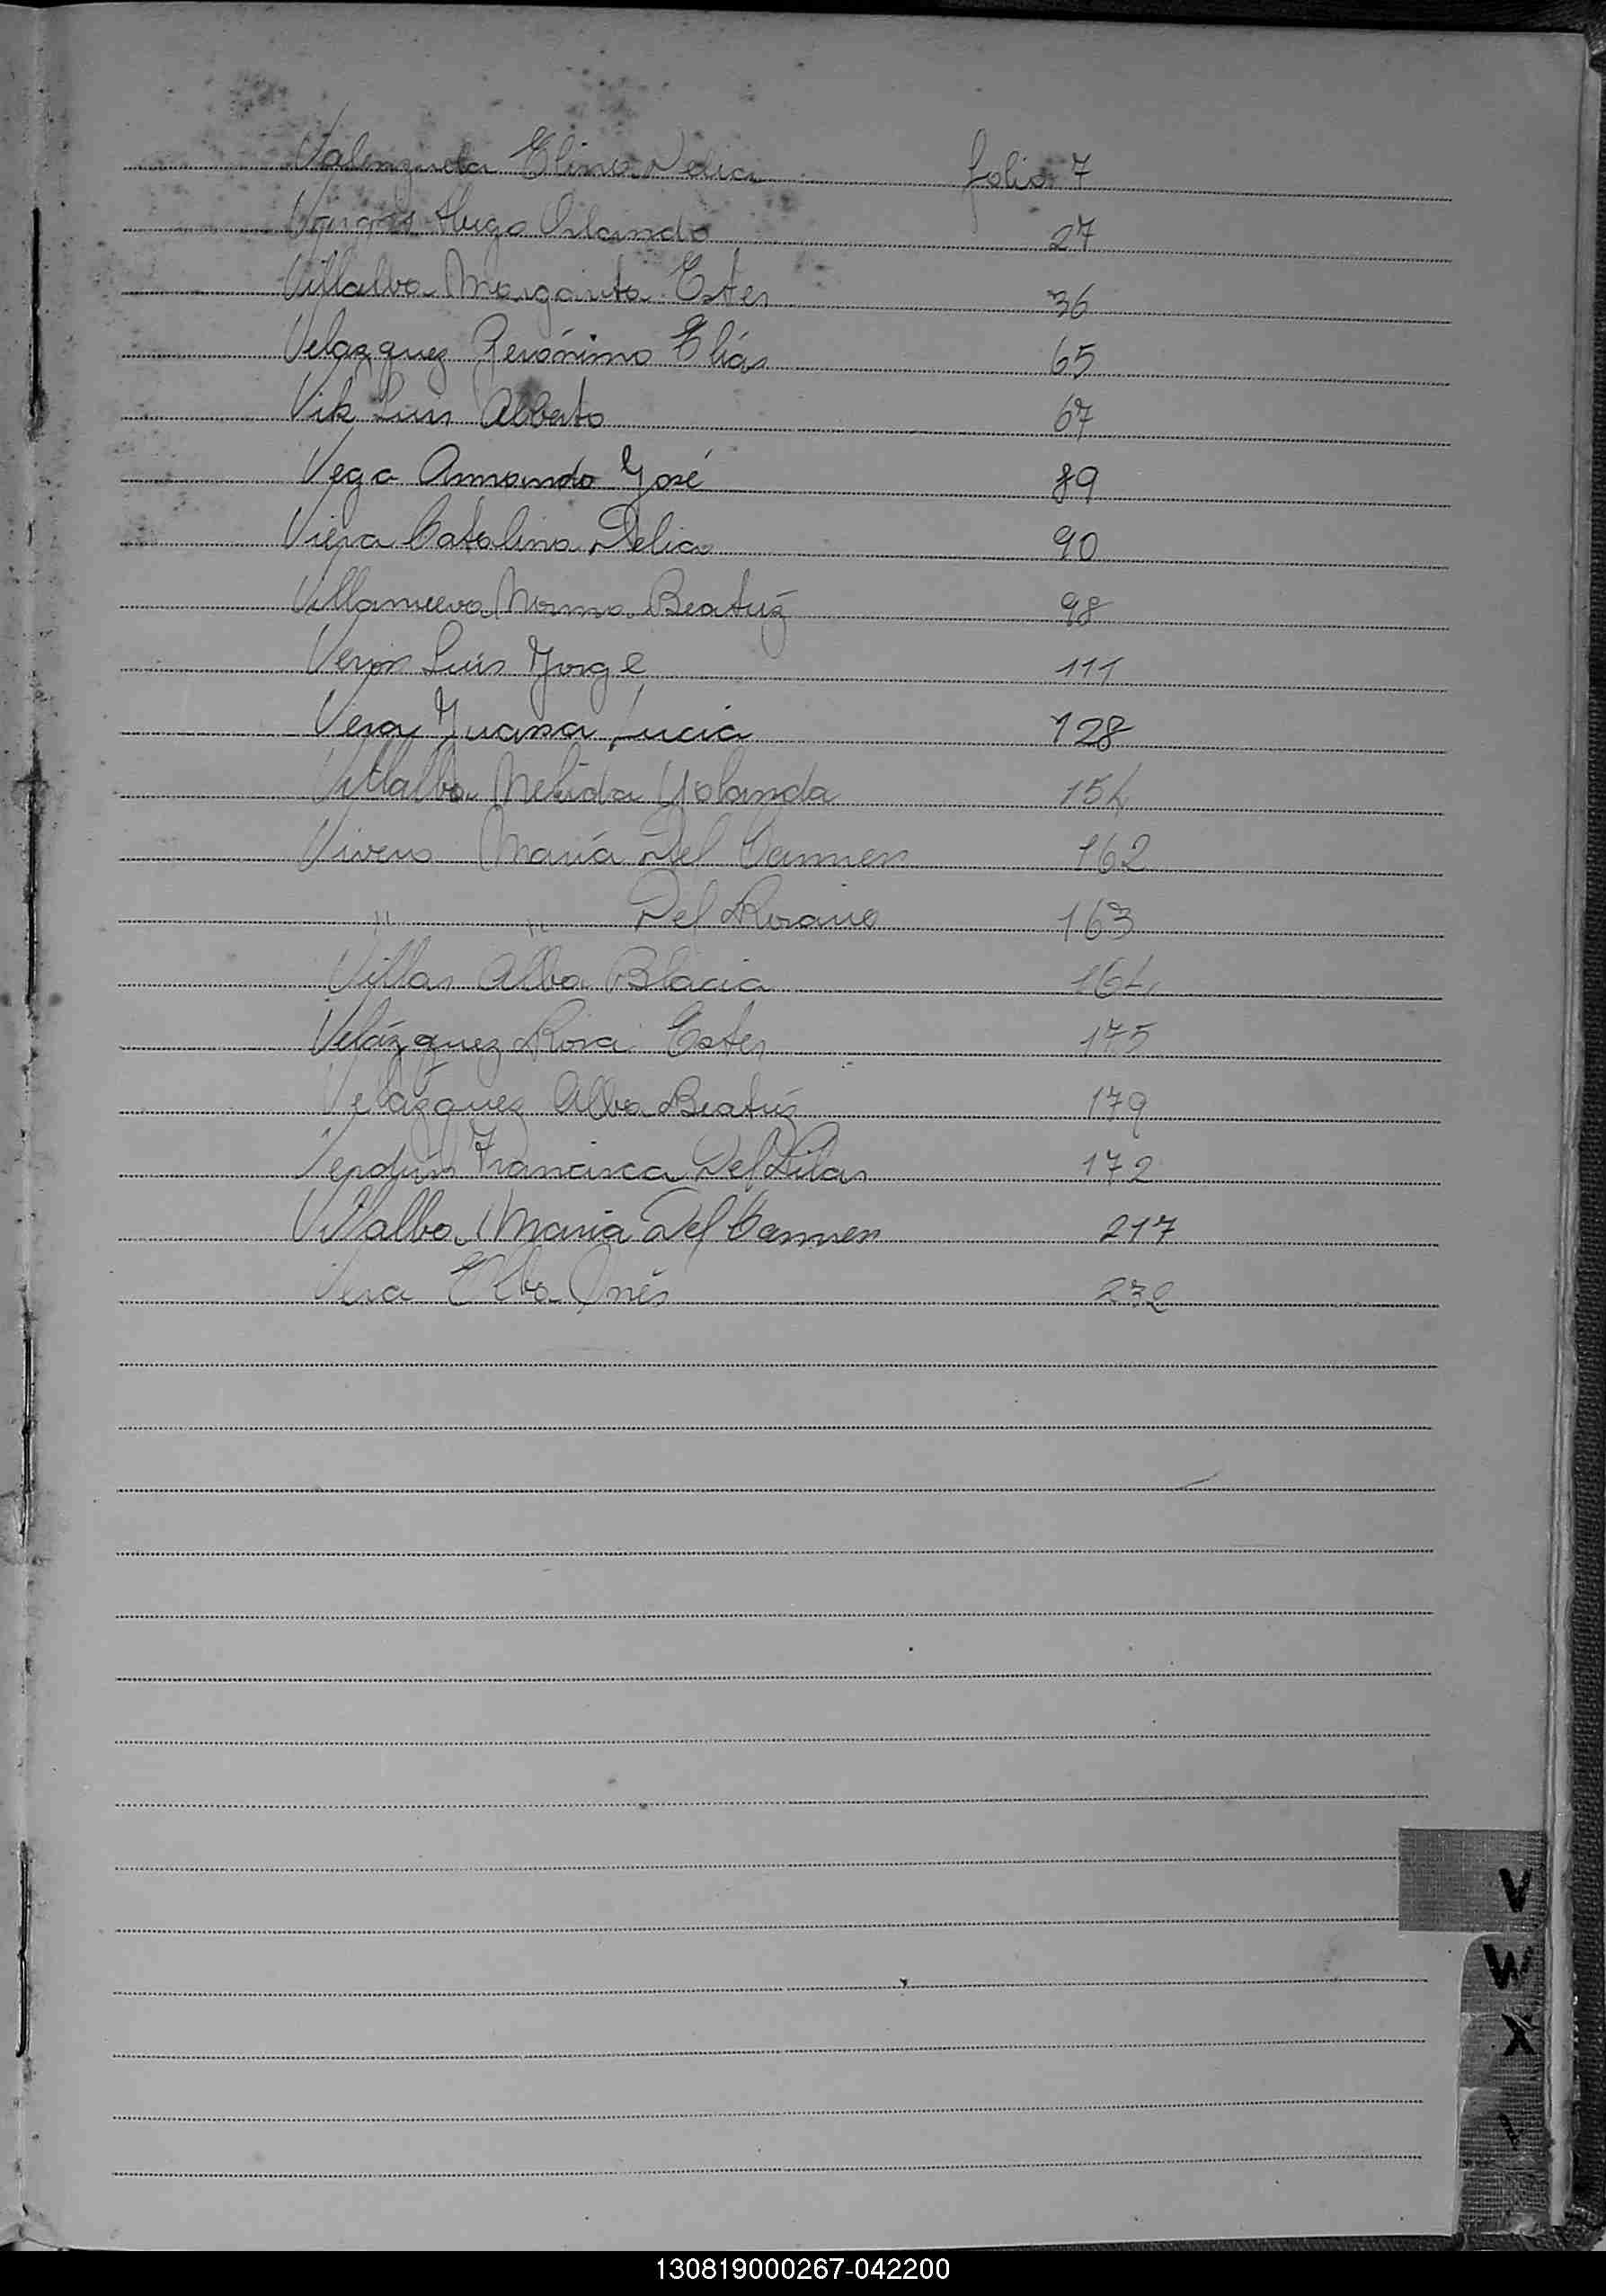 Valenzuela Elina Delia folio 7
Vargas Hugo Orlando 27
Villalba Margarita Ester 36
Velazquez Gerónimo Elías 65
Vik Luis Alberto 67
Vega Armando José 89
Viera Catalina Delia 90
Villanueva Norma Beatríz 98
Luis Jorge 111
Vera Juana Lucia 128
Villalba Nelida Yolanda 154
Vivero María Del Carmen 162
" " Del Rosario 163
Villar Alba 164
Velázquez Rosa Ester 175
Velázquez Alba Beatríz 179
Verdún Francisca Del Pilar 172
Villalba Maria Del Carmen 217
Vera Elba Inés 232
V
W
X
130819000267-042200